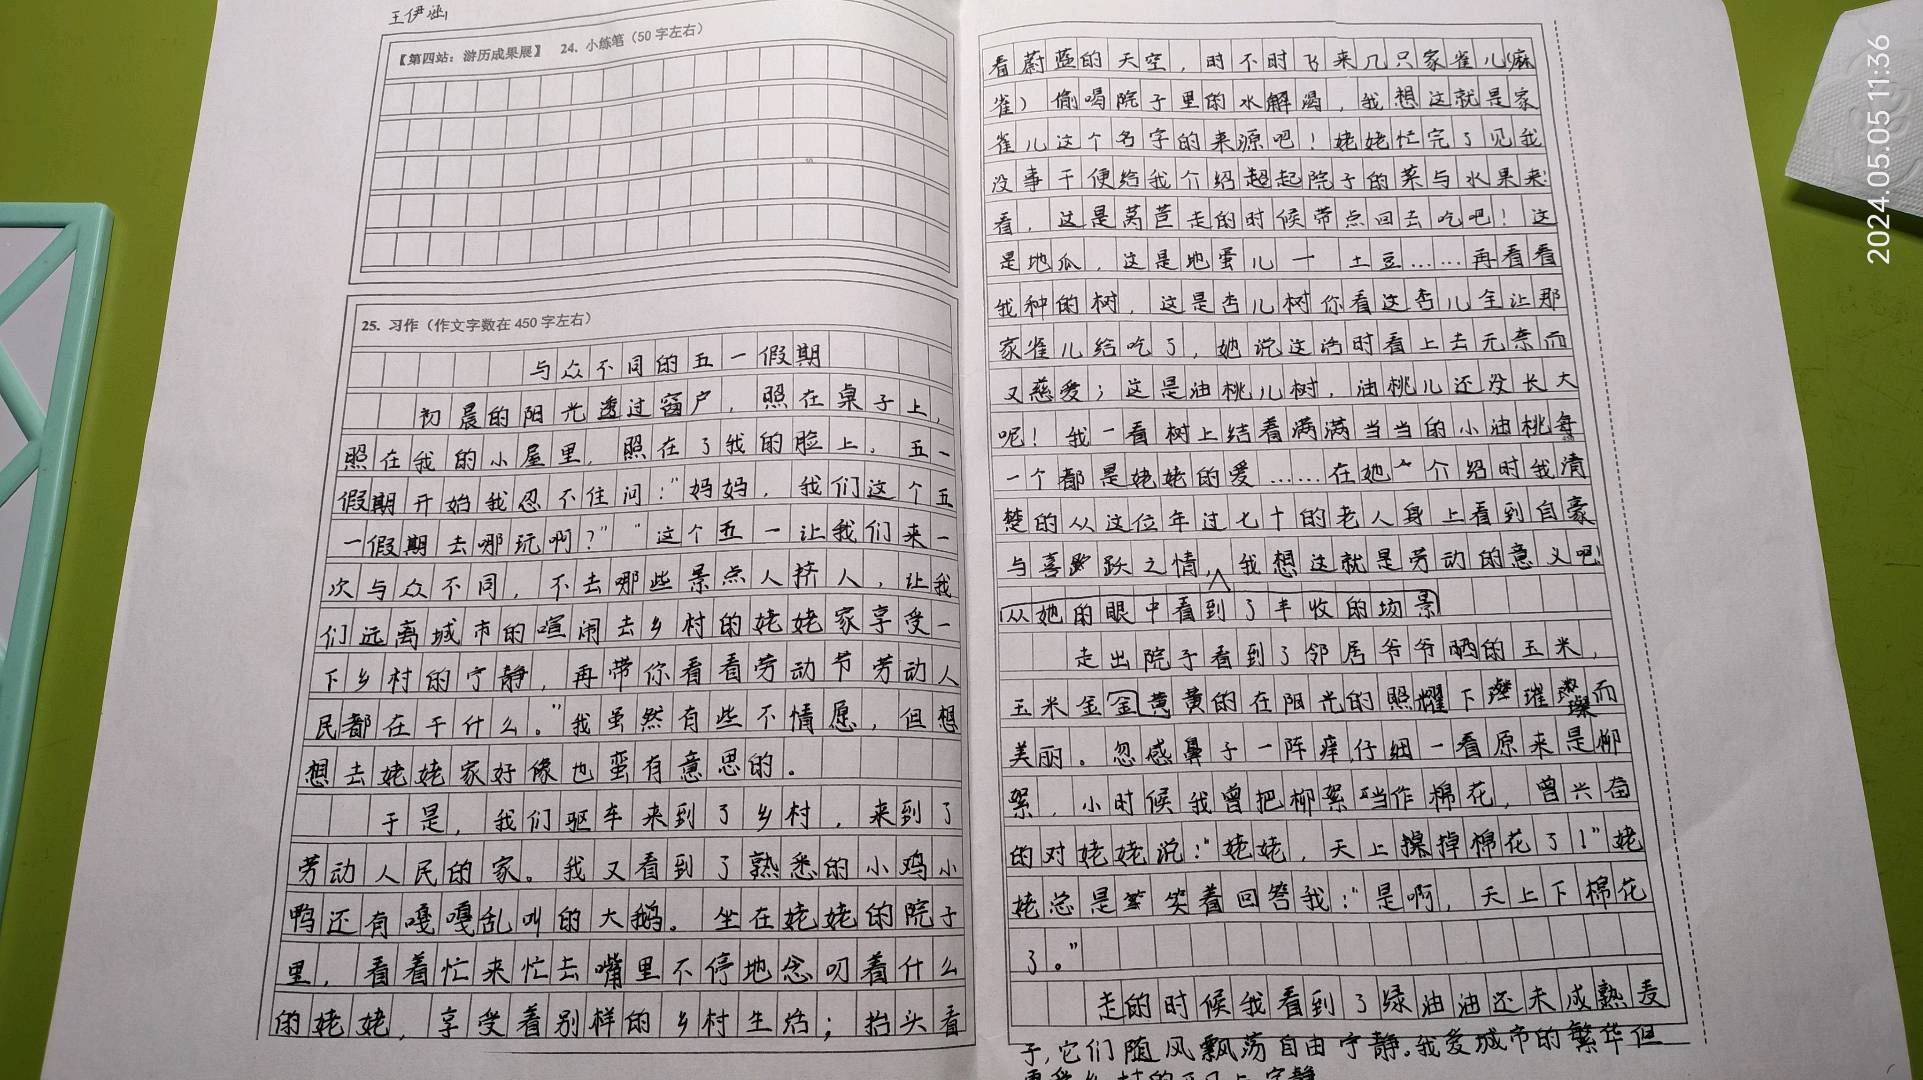 王伊涵
【第四站：游历成果展】 24. 小练笔（50 字左右）
25. 习作（作文字数在 450 字左右）
与众不同的五一假期
初晨的阳光透过窗户，照在桌子上，
照在我的小屋里，照在了我的脸上。五一
假期开始我忍不住问：“妈妈，我们这个五
一假期去哪玩啊？”“这个五一让我们来一
次与众不同，不去哪些景点人挤人，让我
们远离城市的喧闹去乡村的姥姥家享受一
下乡村的宁静，再带你看看劳动节劳动人
民都在干什么。”我虽然有些不情愿，但想
想去姥姥家好像也蛮有意思的。
于是，我们驱车来到了乡村，来到了
劳动人民的家。我又看到了熟悉的小鸡小
鸭还有嘎嘎乱叫的大鹅。坐在姥姥的院子
里，看着忙来忙去嘴里不停地念叨着什么
的姥姥，享受着别样的乡村生活；抬头看
看蔚蓝的天空，时不时飞来几只家雀儿（麻
雀）偷喝院子里的水解渴，我想这就是家
雀儿这个名字的来源吧！姥姥忙完了见我
没事干便给我介绍起院子的菜与水果来：
看，这是莴苣走的时候带点回去吃吧！这
是地瓜，这是地蛋儿一土豆……再看看
我种的树，这是杏儿树你看这杏儿全让那
家雀儿给吃了，她说这话时看上去无奈而
又慈爱；这是油桃儿树，油桃儿还没长大
呢！我一看树上结着满满当当的小油桃每
一个都是姥姥的爱……在她介绍时我清
楚的从这位年过七十的老人身上看到自豪
与喜跃之情，我想这就是劳动的意义吧！
从她的眼中看到了丰收的场景
走出院子看到了邻居爷爷晒的玉米，
玉米金金黄黄的在阳光的照耀下璀璨而
美丽。忽感鼻子一阵痒仔细一看原来是柳
絮，小时候我曾把柳絮当作棉花，曾兴奋
的对姥姥说：“姥姥，天上掉棉花了！”姥
姥总是笑着回答我：“是啊，天上下棉花
了。”
走的时候我看到了绿油油还未成熟麦
子，它们随风飘荡自由宁静。我爱城市的繁华但
2024.05.05 11:36